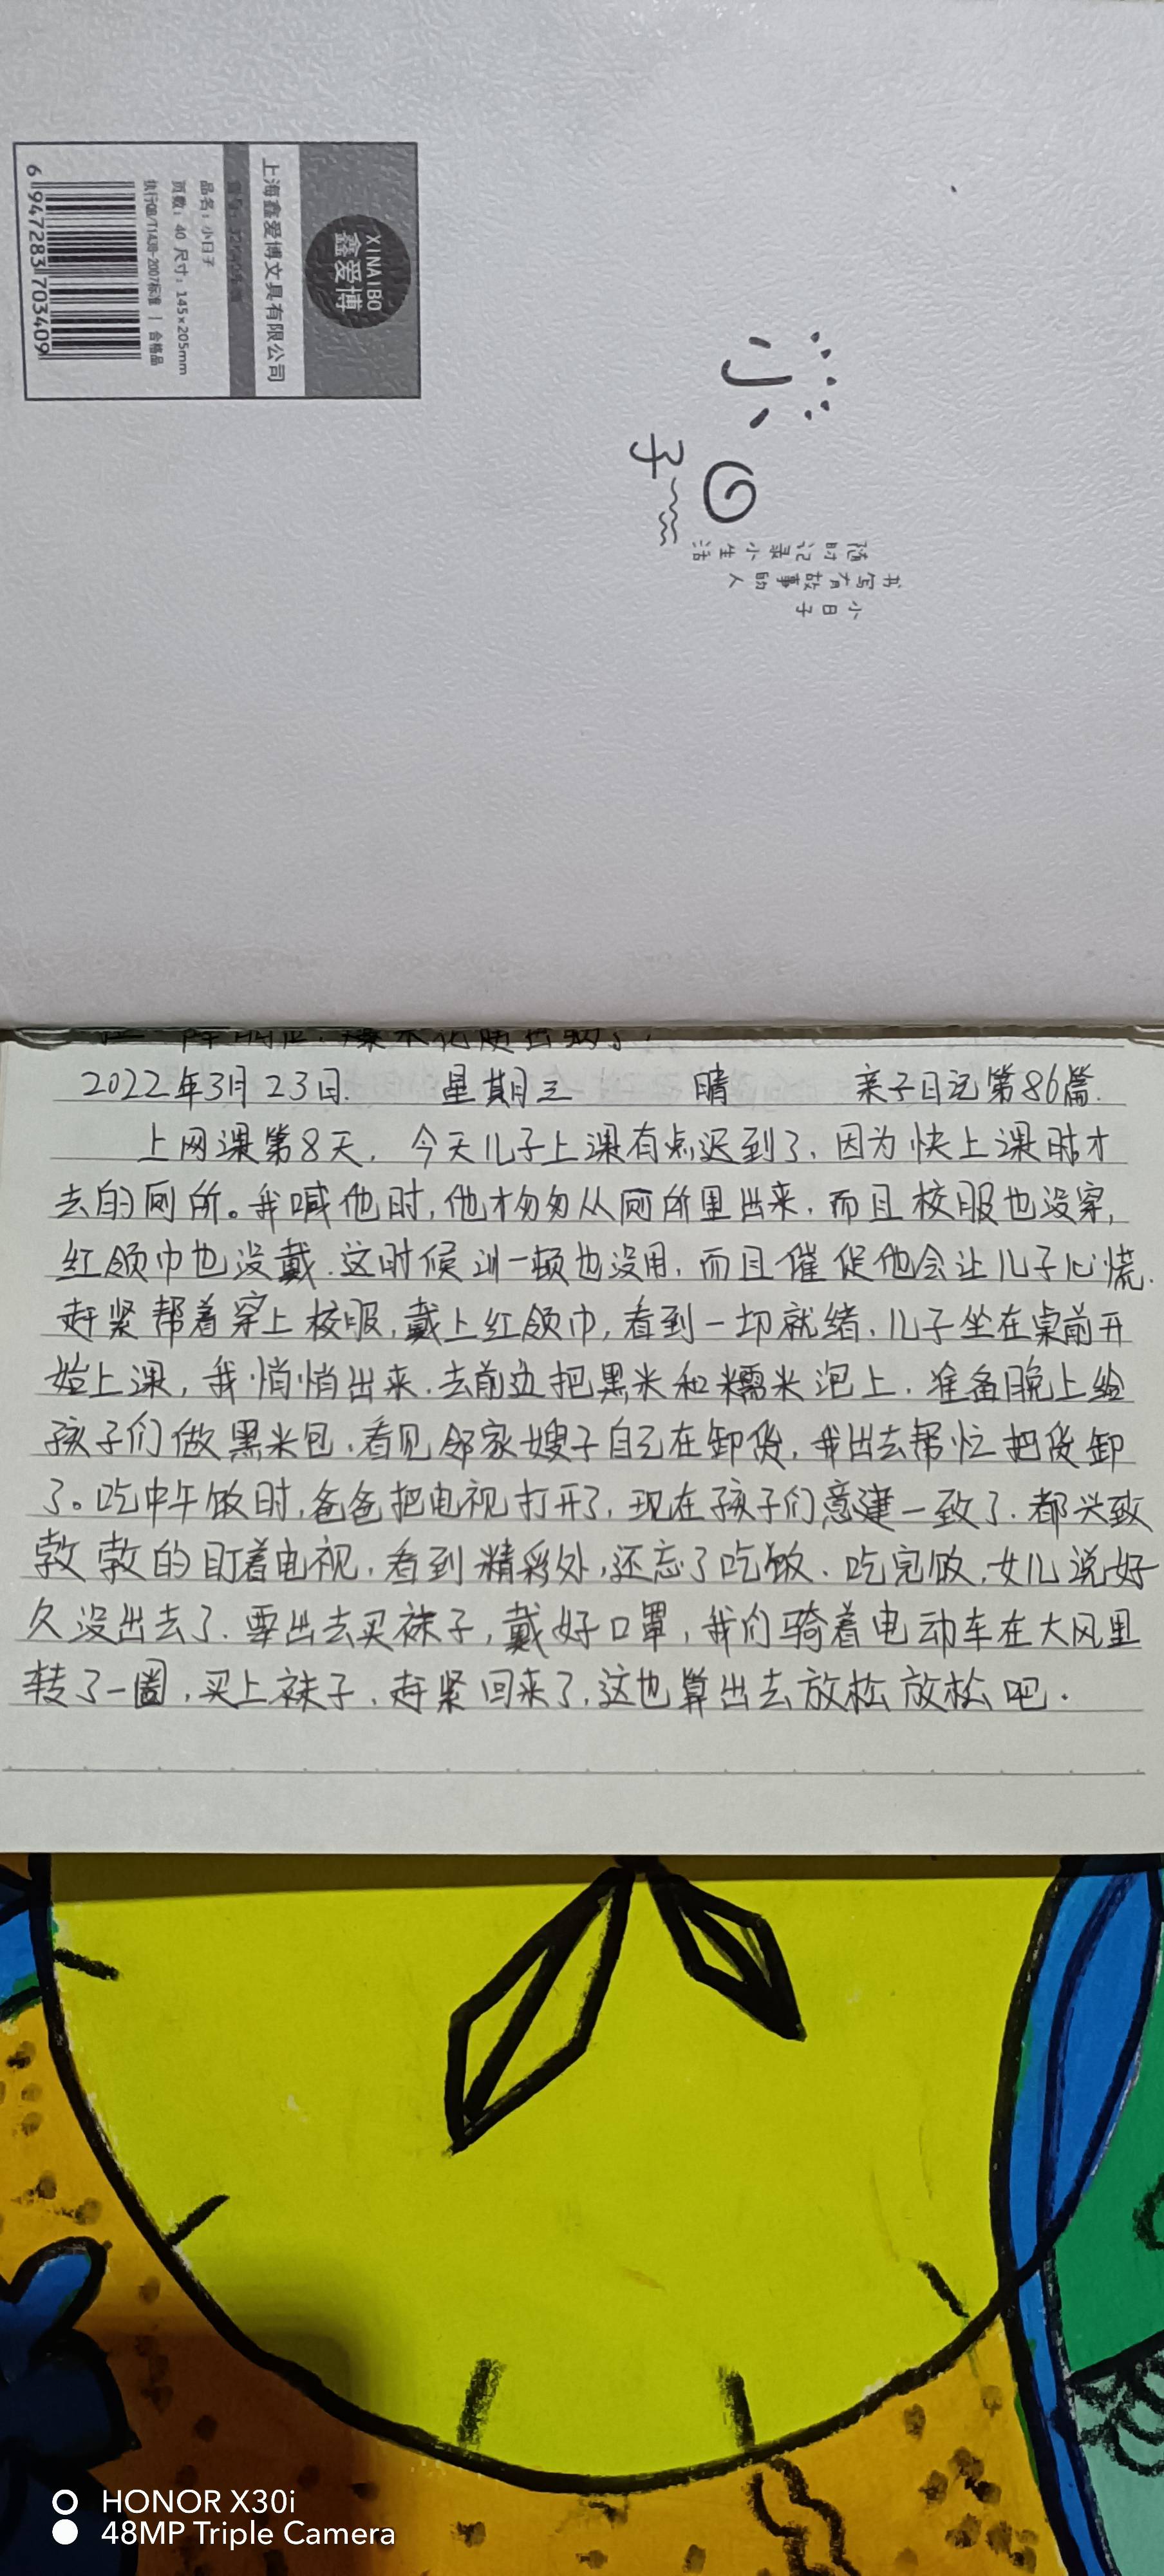 XINAIBO
鑫爱博
上海鑫爱博文具有限公司
品名：小日子
页数：40 尺寸：145×205mm
执行QB/T1438-2007标准 | 合格品
6 947283 703409
小日子
随时记录小生活
书写有故事的人
小日子
2022年3月23日. 星期三 晴 亲子日记第86篇.
上网课第8天，今天儿子上课有点迟到了，因为快上课时才
去的厕所。我喊他时，他才匆匆从厕所里出来，而且校服也没穿，
红领巾也没戴.这时候训一顿也没用，而且催促他会让儿子心慌.
赶紧帮着穿上校服，戴上红领巾，看到一切就绪，儿子坐在桌前开
始上课，我悄悄出来.去前边把黑米和糯米泡上.准备晚上给
孩子们做黑米包，看见邻家嫂子自己在卸货，我出去帮忙把货卸
了。吃中午饭时，爸爸把电视打开了，现在孩子们意建一致了.都兴致
勃勃的盯着电视，看到精彩处，还忘了吃饭.吃完饭，女儿说好
久没出去了.要出去买袜子，戴好口罩，我们骑着电动车在大风里
转了一圈，买上袜子，赶紧回来了，这也算出去放松放松吧.
HONOR X30i
48MP Triple Camera